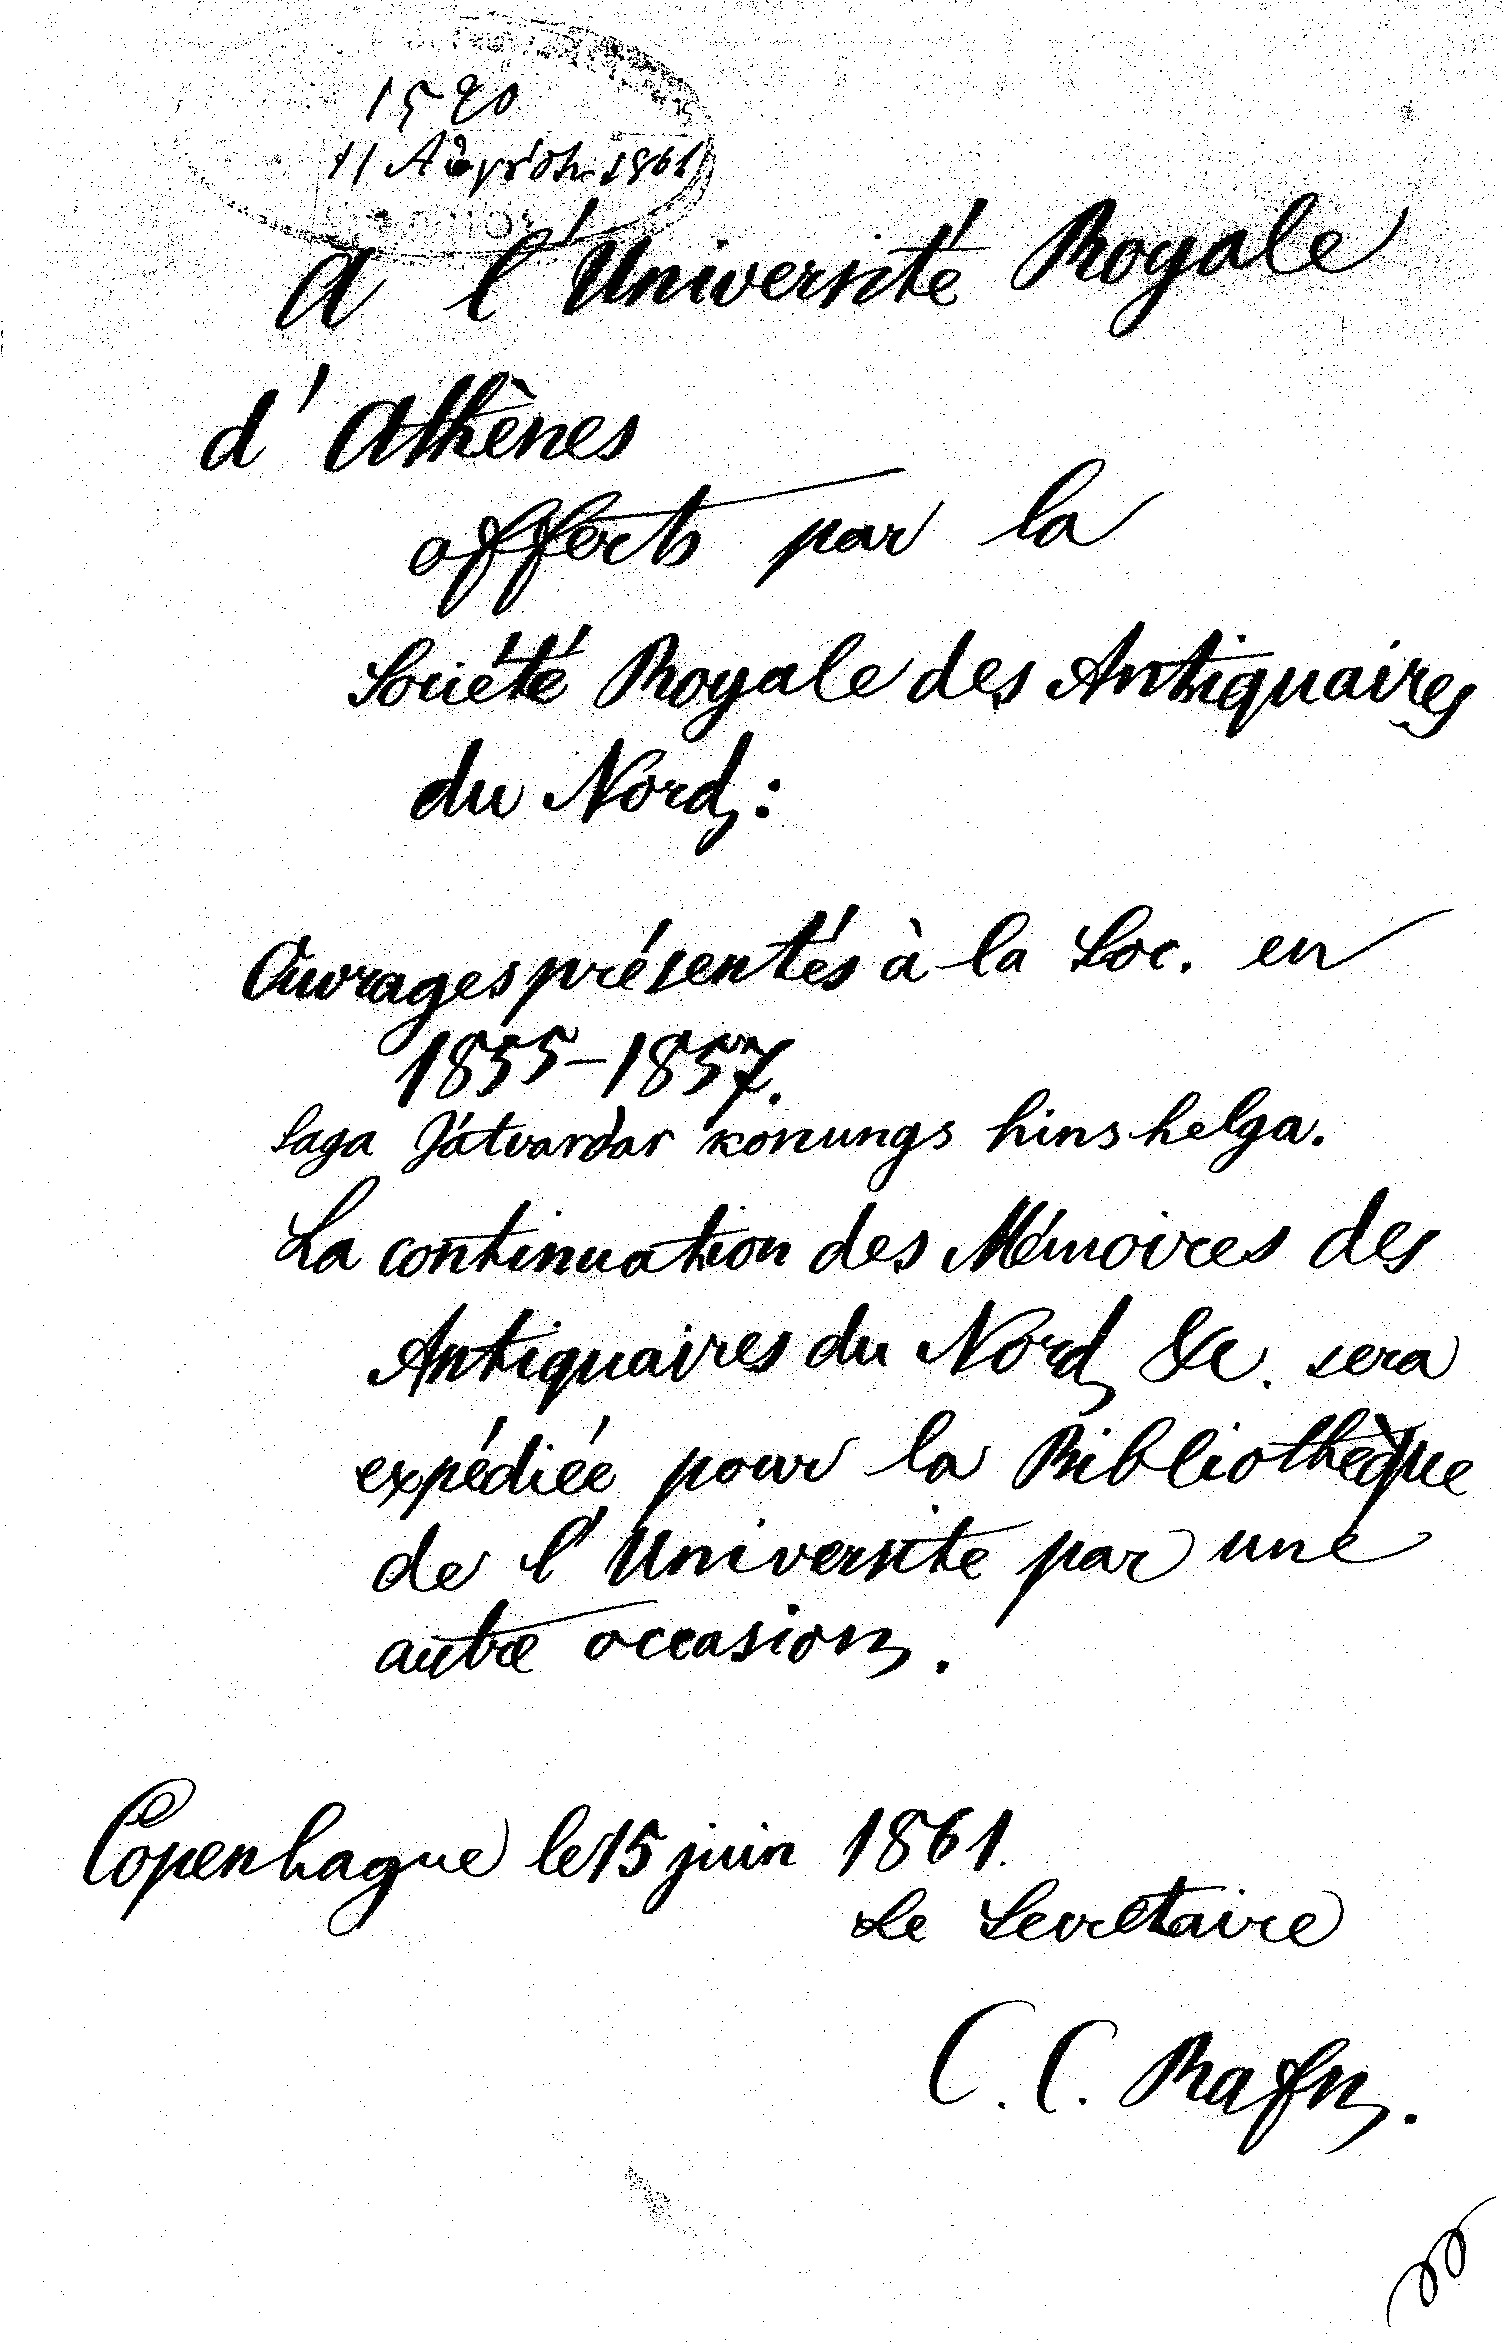 1520
11 Αὐγούστ. 1861
A l'Université Royale
d'Athènes
offerts par la
Société Royale des Antiquaires
du Nord:
Ouvrages présentés à la Soc. en
1855-1857.
Saga Játvarðar konungs hins helga.
La continuation des Mémoires des
Antiquaires du Nord &c. sera
expédiée pour la Bibliothèque
de l'Université par une
autre occasion.
Copenhague le 15 juin 1861.
Le Secrétaire
C. C. Rafn.